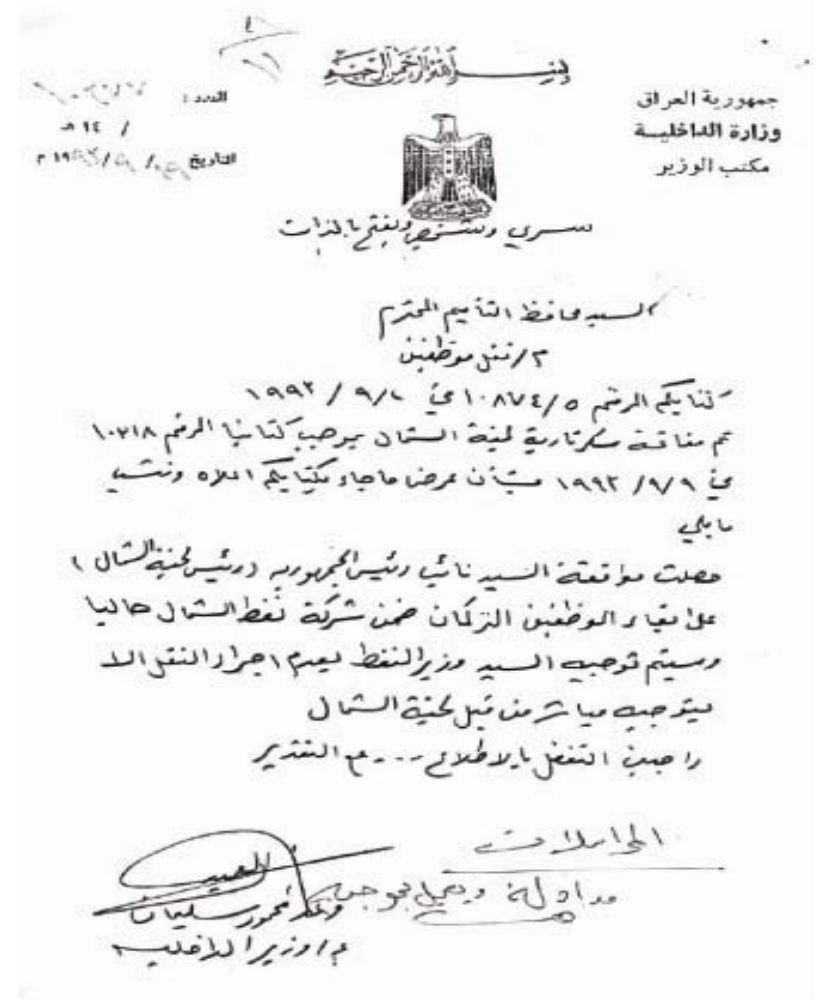 بسم الله الرحمن الرحيم
جمهورية العراق
وزارة الداخلية
مكتب الوزير
العدد :
/ / ١٤ هـ
التاريخ / / ١٩٩٣ م
سري وشخصي ويفتح بالذات
السيد محافظ التأميم المحترم
م/ نقل موظفين
كتابكم المرقم ١٠٨٧٤/٥ في ٩/٢ / ١٩٩٣
تم مفاتحة سكرتارية لجنة الشمال بموجب كتابنا المرقم ١٠٣١٨
في ٩/٩/ ١٩٩٣ بشأن عرض ماجاء بكتابكم اعلاه وننسب
مايلي
حصلت موافقة السيد نائب رئيس الجمهورية (رئيس لجنة الشمال)
على بقاء الموظفين التركمان ضمن شركة نفط الشمال حاليا
وسيتم توجيه السيد وزير النفط بعدم اجراء النقل الا
بتوجيه مباشر من قبل لجنة الشمال
راجين التفضل بالاطلاع ... مع التقدير
العميد
محمود سليمان
م/وزير الداخلية